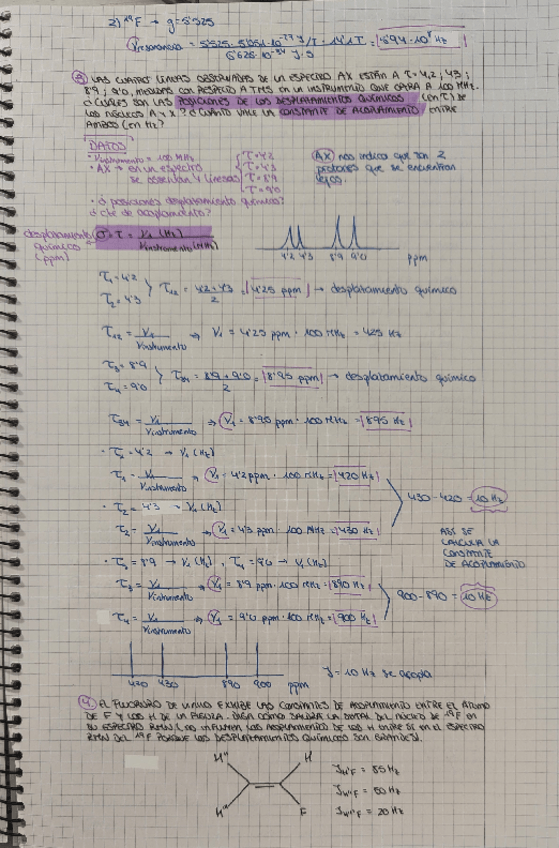 2) ¹⁹F → g = 5'525
Vresonancia = 5'525 · 5'051·10⁻²⁷ J/T · 14'1T = 5'94·10⁸ Hz
6'626·10⁻³⁴ J·s
3) LAS CUATRO LÍNEAS OBSERVADAS DE UN ESPECTRO AX ESTÁN A τ = 4,2; 4,3;
8'9; 9,0, MEDIDAS CON RESPECTO A TMS EN UN INSTRUMENTO QUE OPERA A 100 MHz.
¿CUÁLES SON LAS POSICIONES DE LOS DESPLAZAMIENTOS QUÍMICOS (en τ) DE
LOS NÚCLEOS A y X? ¿CUÁNTO VALE LA CONSTANTE DE ACOPLAMIENTO ENTRE
AMBOS (en Hz)?
DATOS
· Vinstrumento = 100 MHz
· AX → en un espectro
se observan 4 líneas
τ = 4'2
τ = 4'3
τ = 8'9
τ = 9'0
AX nos indica que son 2
protones que se encuentran
lejos.
· ¿posiciones desplazamiento químico?
¿cte de acoplamiento?
desplazamiento
químico
(ppm)
σ = τ = V₁ (Hz)
Vinstrumento (MHz)
4'2 4'3 8'9 9'0 ppm
τ₁ = 4'2
τ₂ = 4'3
τ₁₂ = 4'2 + 4'3 = 4'25 ppm → desplazamiento químico
2
τ₁₂ = V₁ ⇒ V₁ = 4'25 ppm · 100 MHz = 425 Hz
Vinstrumento
τ₃ = 8'9
τ₄ = 9'0
τ₃₄ = 8'9 + 9'0 = 8'95 ppm → desplazamiento químico
2
τ₃₄ = V₁ ⇒ V₁ = 8'95 ppm · 100 MHz = 895 Hz
Vinstrumento
· τ₁ = 4'2 → V₁ (Hz)
τ₁ = V₁ ⇒ V₁ = 4'2 ppm · 100 MHz = 420 Hz
Vinstrumento
430 - 420 = 10 Hz
· τ₂ = 4'3 → V₁ (Hz)
τ₂ = V₁ ⇒ V₁ = 4'3 ppm · 100 MHz = 430 Hz
Vinstrumento
ASÍ SE
CALCULA LA
CONSTANTE
DE ACOPLAMIENTO
· τ₃ = 8'9 → V₁ (Hz), τ₄ = 9'0 → V₁ (Hz)
τ₃ = V₁ ⇒ V₁ = 8'9 ppm · 100 MHz = 890 Hz
Vinstrumento
900 - 890 = 10 Hz
τ₄ = V₁ ⇒ V₁ = 9'0 ppm · 100 MHz = 900 Hz
Vinstrumento
420 430 890 900 ppm
J = 10 Hz se acopla
4) EL FLUORURO DE VINILO EXHIBE LAS CONSTANTES DE ACOPLAMIENTO ENTRE EL ÁTOMO
DE F Y LOS H DE LA FIGURA. DIGA CÓMO SALDRÁ LA SEÑAL DEL NÚCLEO DE ¹⁹F EN
SU ESPECTRO RMN (NO INFLUYEN LOS ACOPLAMIENTOS DE LOS H ENTRE SÍ EN EL ESPECTRO
RMN DEL ¹⁹F PORQUE LOS DESPLAZAMIENTOS QUÍMICOS SON GRANDES).
H'' H'
H''' F
= 85 Hz
= 50 Hz
= 20 Hz